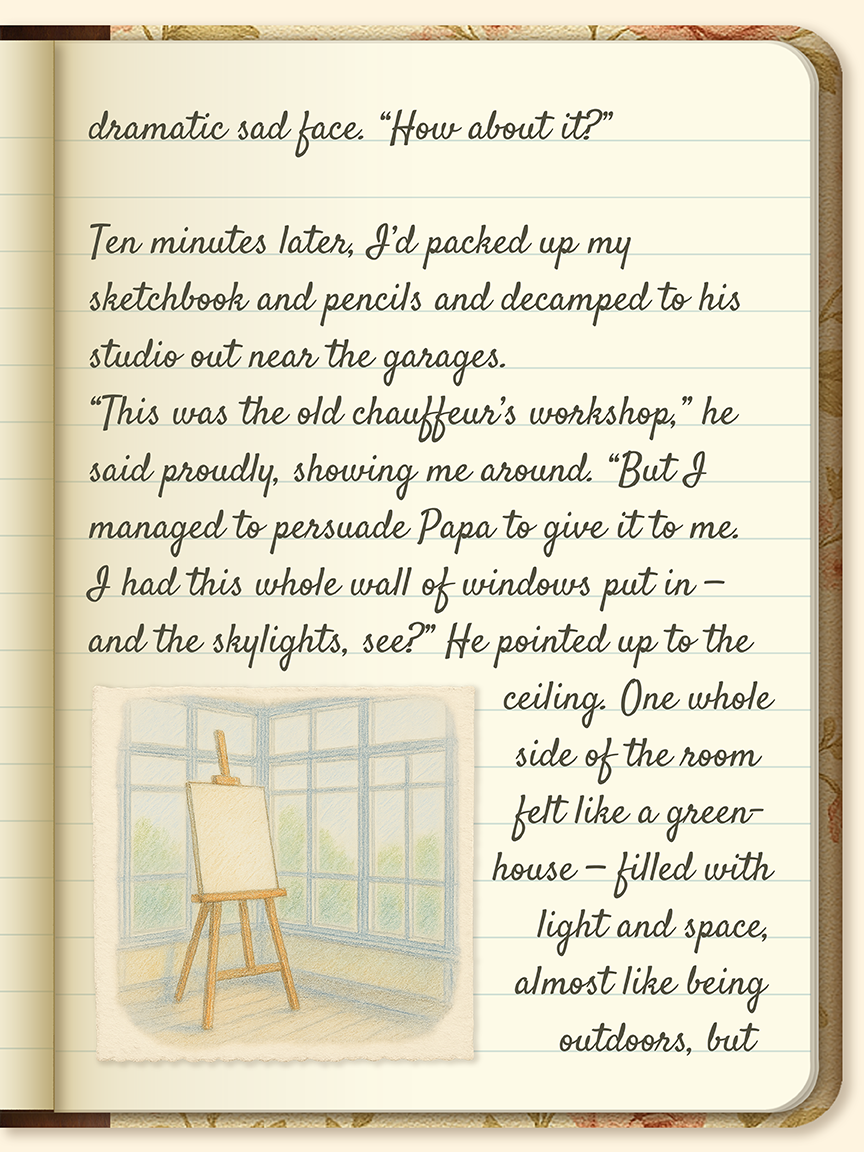 dramatic sad face. “How about it?”
Ten minutes later, I’d packed up my
sketchbook and pencils and decamped to his
studio out near the garages.
“This was the old chauffeur’s workshop,” he
said proudly, showing me around. “But I
managed to persuade Papa to give it to me.
I had this whole wall of windows put in –
and the skylights, see?” He pointed up to the
ceiling. One whole
side of the room
felt like a green-
house – filled with
light and space,
almost like being
outdoors, but